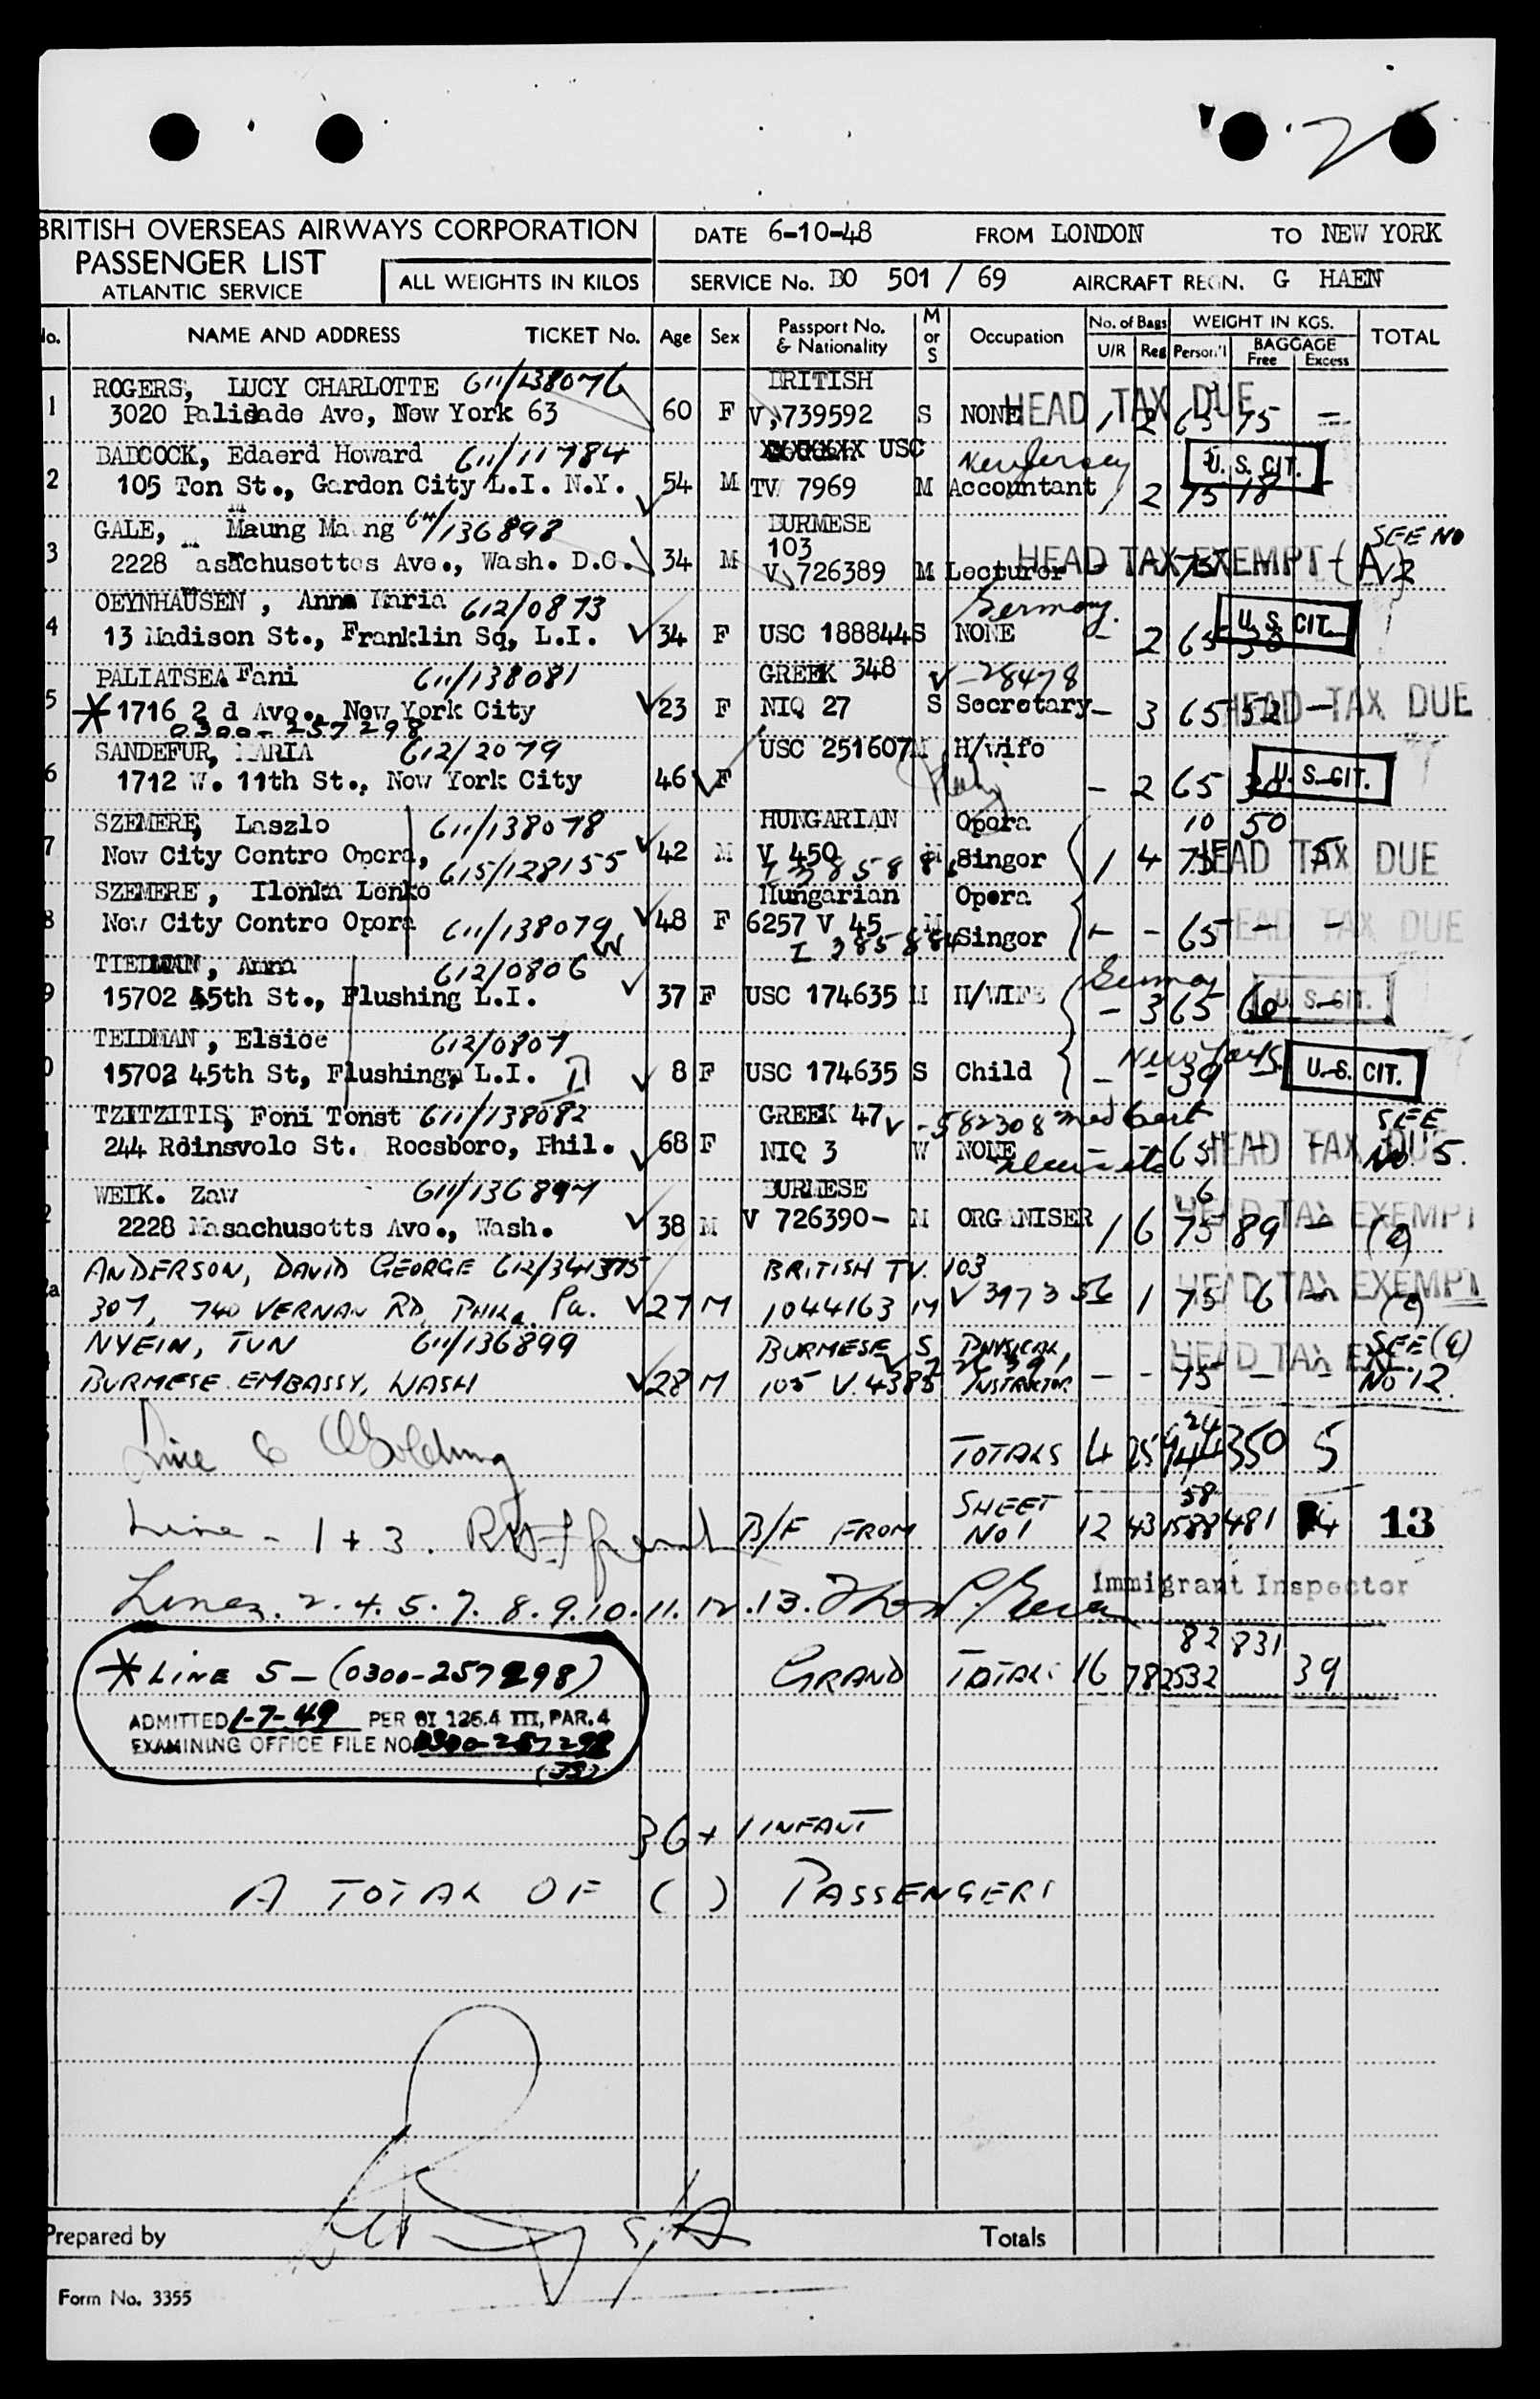 BRITISH OVERSEAS AIRWAYS CORPORATION
PASSENGER LIST
ATLANTIC SERVICE
ALL WEIGHTS IN KILOS
DATE 6-10-48 FROM LONDON TO NEW YORK
SERVICE No. BO 501 / 69 AIRCRAFT REGN. G HAEN
No. NAME AND ADDRESS TICKET No. Age Sex Passport No. & Nationality M or S Occupation No. of Bags U/R Reg WEIGHT IN KGS. Person'l BAGGAGE Free Excess TOTAL
1 ROGERS, LUCY CHARLOTTE 611/138076 BRITISH HEAD TAX DUE
3020 Palisade Ave, New York 63 60 F V 739592 S NONE 1 2 65 75 =
2 BADCOCK, Edaerd Howard 611/11784 USC New Jersey U. S. CIT.
105 Ton St., Garden City L.I. N.Y. 54 M TV 7969 M Accountant 1 2 75 18 -
3 GALE, Maung Maung 611/136898 BURMESE 103 SEE NO
2228 Masachusettes Ave., Wash. D.C. 34 M V 726389 M Lecturer HEAD TAX EXEMPT - - 75 (A) 12
4 OEYNHAUSEN, Anna Maria 612/0873 Germany. U. S. CIT.
13 Madison St., Franklin Sq, L.I. 34 F USC 188844 S NONE - 2 65 30
5 PALIATSEA Fani 611/138081 GREEK 348 V-28478
* 1716 2 d Ave., New York City 23 F NIQ 27 S Secretary - 3 65 52 - HEAD TAX DUE
0300-257298
6 SANDEFUR, MARIA 612/2079 USC 251607 M H/wife
1712 W. 11th St., New York City 46 F - 2 65 30 U. S. CIT.
7 SZEMERE, Laszlo 611/138078 HUNGARIAN Opera 10 50
New City Centro Opera, 615/128155 42 M V 450 M Singer 1 4 75 5 HEAD TAX DUE
8 SZEMERE, Ilonka Lenke Hungarian Opera
New City Centro Opera 611/138079 48 F 6257 V 45 M Singer - - 65 - - HEAD TAX DUE
I 385884
9 TIEDMAN, Anna 612/0806 Germany
15702 45th St., Flushing L.I. 37 F USC 174635 M H/WIFE - 3 65 60 - U. S. CIT.
10 TEIDMAN, Elsioe 612/0807 New York
15702 45th St, Flushing, L.I. 8 F USC 174635 S Child - - 39 - U. S. CIT.
TZITZITIS, Foni Tonst 611/138082 GREEK 47 V-582308 med cert SEE
244 Roinsvolo St. Rocsboro, Phil. 68 F NIQ 3 W NONE - - 65 - - HEAD TAX DUE No 5.
WEIK. Zaw 611/136897 BURMESE 6
2228 Masachusotts Ave., Wash. 38 M V 726390- M ORGANISER 1 6 75 89 - HEAD TAX EXEMPT (a)
ANDERSON, DAVID GEORGE 612/341375 BRITISH TV. 103
307, 740 VERNAN RD, PHILA. Pa. 27 M 1044163 M V 3973 56 1 75 6 - HEAD TAX EXEMPT (a)
NYEIN, TUN 611/136899 BURMESE S PHYSICAL SEE (a)
BURMESE EMBASSY, WASH 28 M 105 V. 4385 INSTRUCTOR - - 75 - - HEAD TAX EXE No 12.
TOTALS 4 25 24 944 350 5
Line - 1 + 3. B/F FROM SHEET No 1 12 43 58 1588 481 4 13
Lines. 2. 4. 5. 7. 8. 9. 10. 11. 12. 13. Immigrant Inspector
GRAND TOTAL: 16 78 82 2532 831 39
* LINE 5 - (0300-257298)
ADMITTED 1-7-49 PER OI 126.4 III, PAR. 4
EXAMINING OFFICE FILE NO 0300-257298
36 + 1 INFANT
A TOTAL OF ( ) PASSENGERS
Prepared by Totals
Form No. 3355